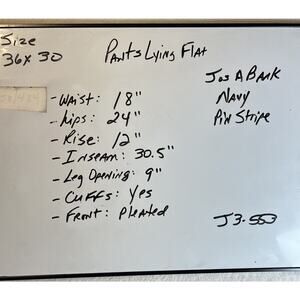 Size
36x30
Pants Lying Flat
Jos A Bank
Navy
Pin Stripe
- Waist: 18"
- Hips: 24"
- Rise: 12"
- Inseam: 30.5"
- Leg Opening: 9"
- Cuffs: Yes
- Front: Pleated
J3-553